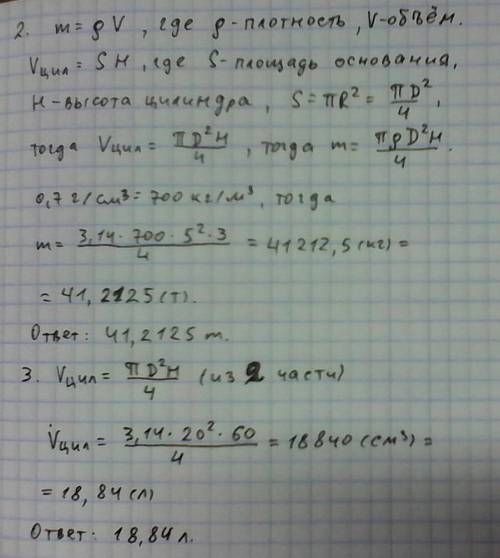 2. m = ρV , где ρ - плотность, V - объём.
Vцил = SH , где S - площадь основания,
H - высота цилиндра , S = πR² = πD²/4 ,
тогда Vцил = πD²H/4 , тогда m = πρD²H/4 .
0,7 г/см³ = 700 кг/м³ , тогда
m = 3,14·700·5²·3/4 = 41212,5 (кг) =
= 41,2125 (т).
Ответ: 41,2125 т.
3. Vцил = πD²H/4 (из 2 части)
Vцил = 3,14·20²·60/4 = 18840 (см³) =
= 18,84 (л)
Ответ: 18,84 л.